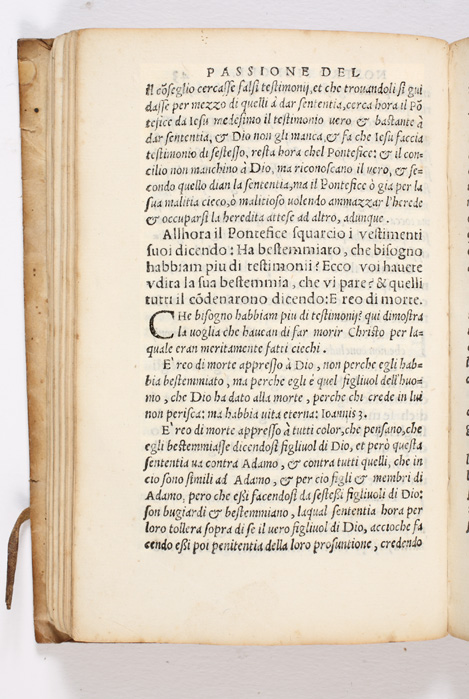 PASSIONE DEL
il cõseglio cercasse falsi testimonij, et che trouandoli si gui
dasse per mezzo di quelli à dar sententia, cerca hora il Põ
tefice da Iesu medesimo il testimonio uero & bastante à
dar sententia, & Dio non gli manca, & fa che Iesu faccia
testimonio di sestesso, resta hora chel Pontefice: & il con-
cilio non manchino à Dio, ma riconoscano il uero, & se-
condo quello dian la sententia, ma il Pontefice ò gia per la
sua malitia cieco, ò malitioso uolendo ammazzar l'herede
& occuparsi la heredita attese ad altro, adunque.
Allhora il Pontefice squarcio i vestimenti
suoi dicendo: Ha bestemmiato, che bisogno
habbiam piu di testimonii? Ecco voi hauete
vdita la sua bestemmia, che vi pare? & quelli
tutti il cõdenarono dicendo: E reo di morte.
CHe bisogno habbiam piu di testimonij? qui dimostra
la uoglia che hauean di far morir Christo per la-
quale eran meritamente fatti ciechi.
E' reo di morte appresso à Dio, non perche egli hab-
bia bestemmiato, ma perche egli è quel figliuol dell'huo-
mo, che Dio ha dato alla morte, perche chi crede in lui
non perisca: ma habbia uita eterna: Ioannis 3.
E' reo di morte appresso à tutti color, che pensano, che
egli bestemmiasse dicendosi figliuol di Dio, et però questa
sententia ua contra Adamo, & contra tutti quelli, che in
cio sono simili ad Adamo, & per cio figli & membri di
Adamo, pero che essi facendosi da sestessi figliuoli di Dio:
son bugiardi & bestemmiano, laqual sententia hora per
loro tollera sopra di se il uero figliuol di Dio, accioche fa
cendo essi poi penitentia della loro prosuntione, credendo